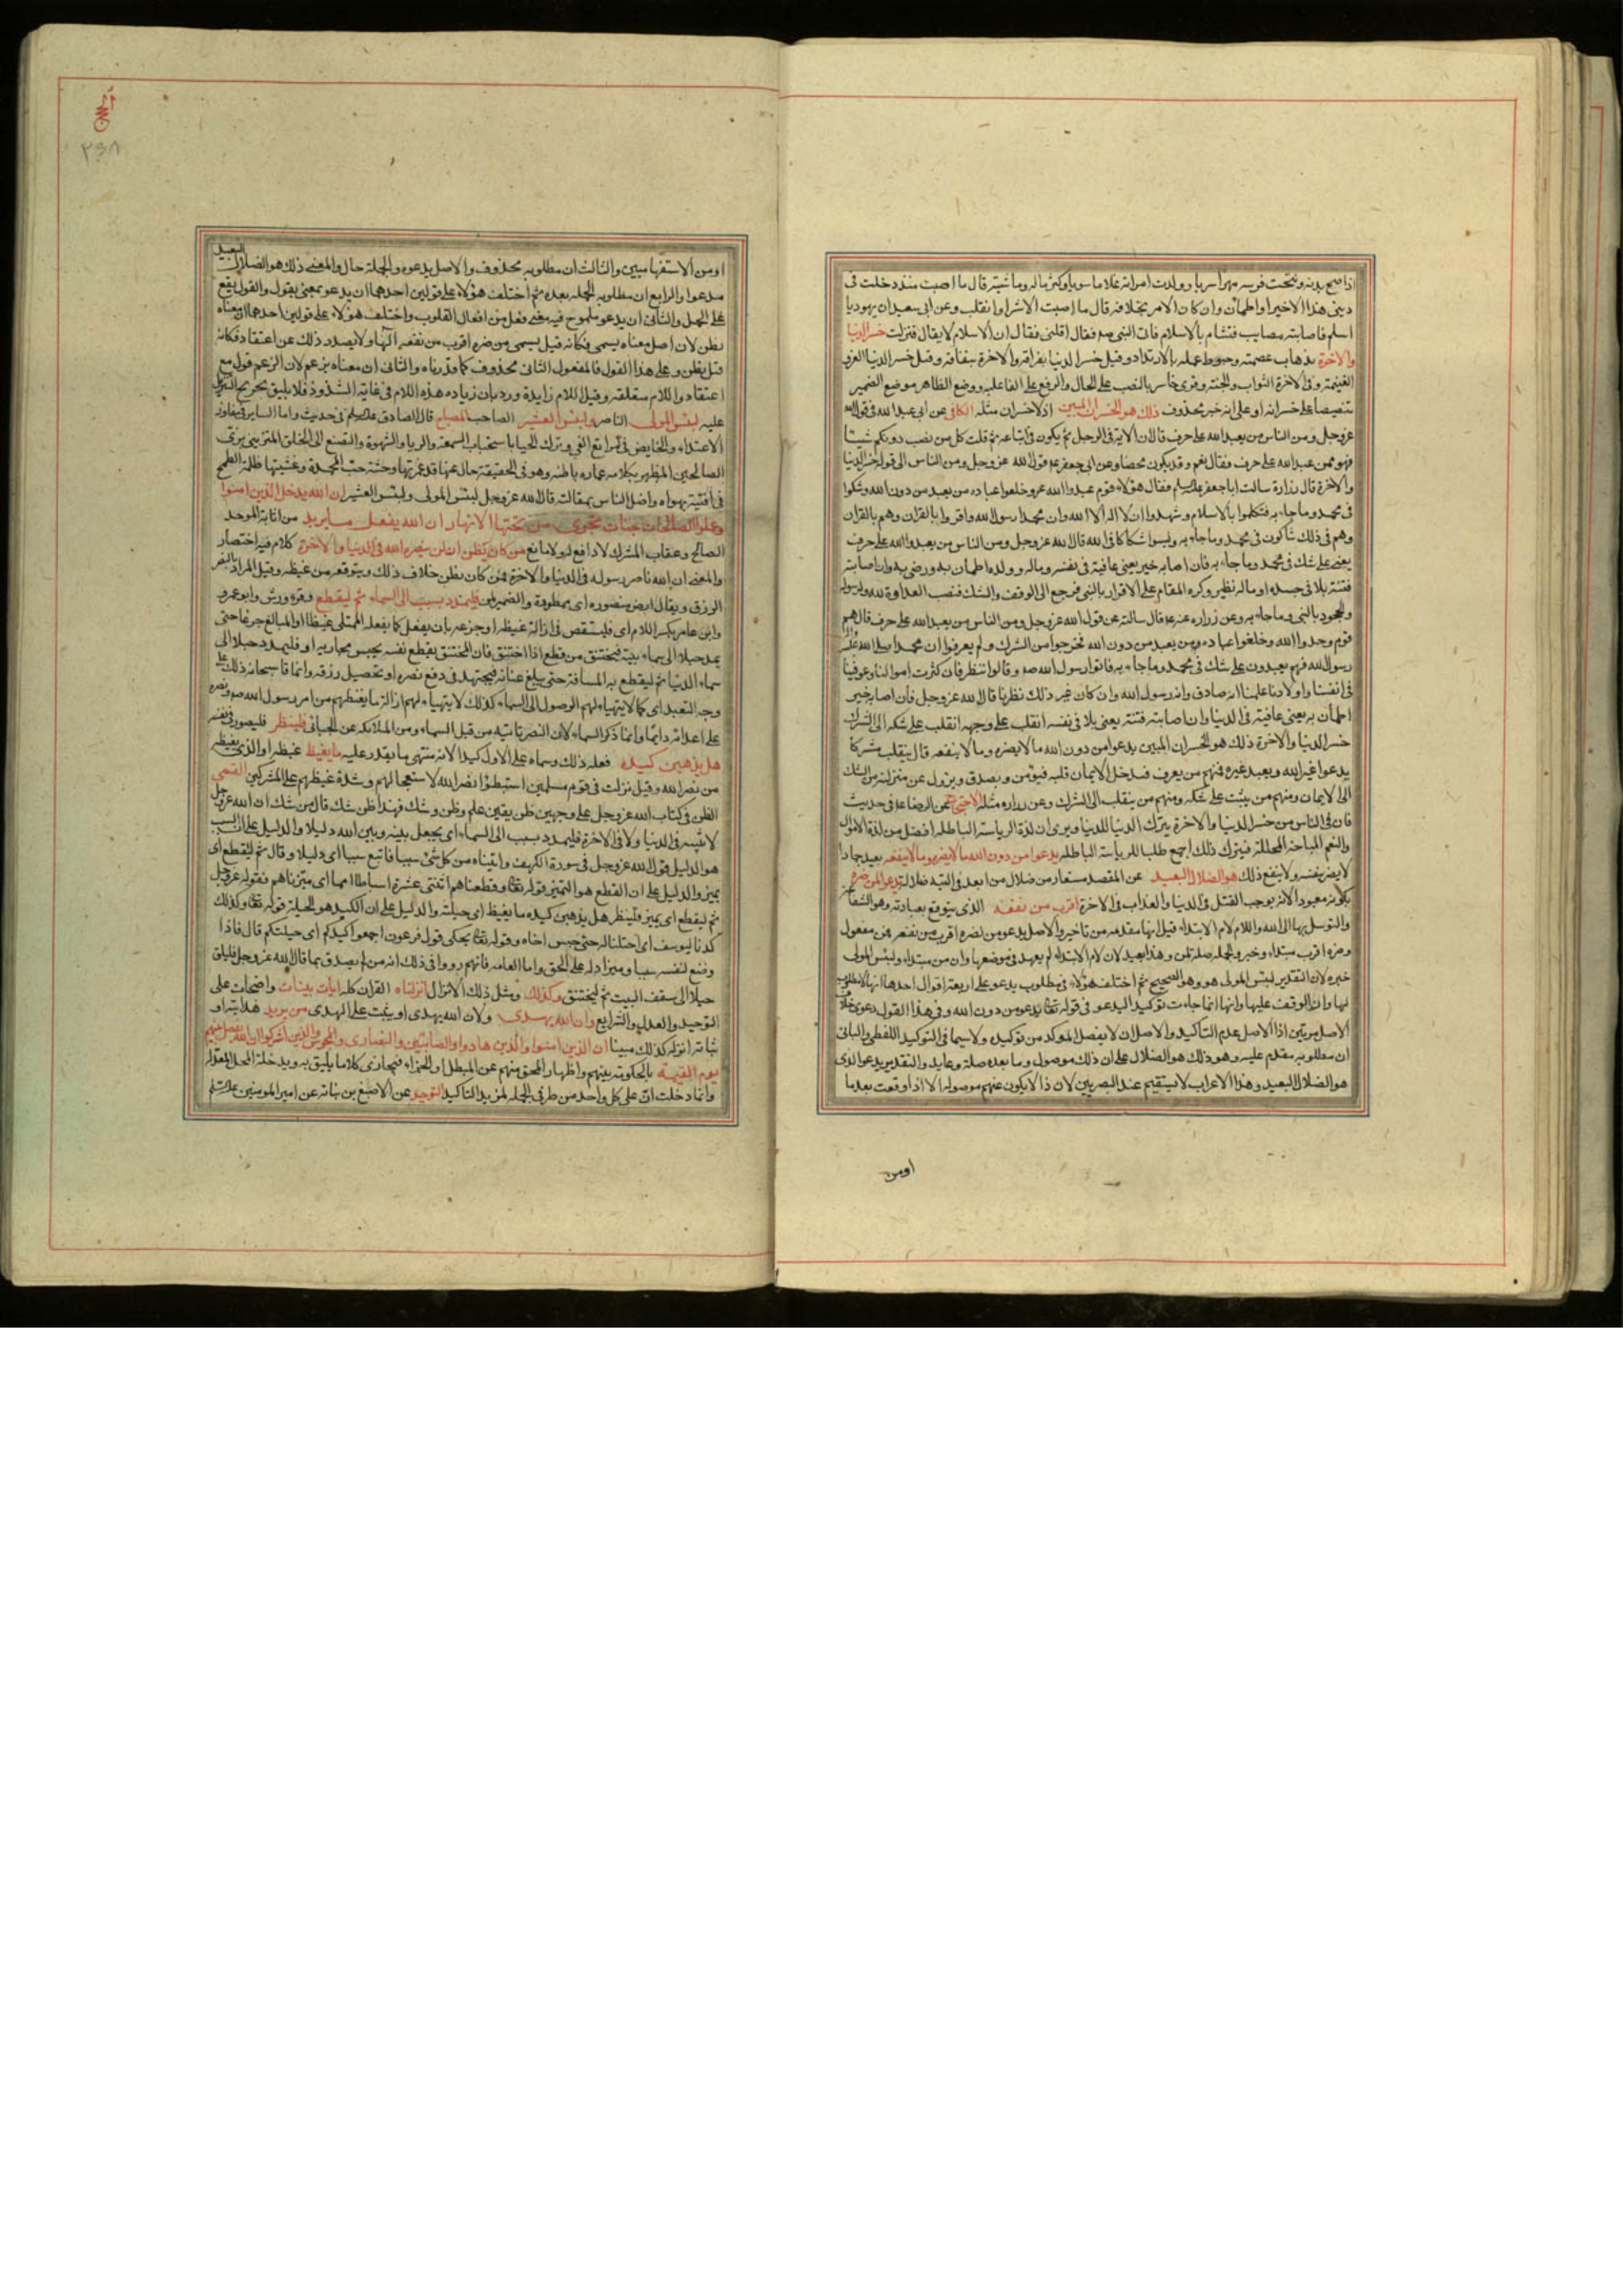 اذا صح بدنه ونتجت فرسه مهرا سريا وولدت امراته غلاما سويا وكثر ماله وماشيته قال ما اصبت منذ دخلت فى
دينى هذا الا خيرا واطمان وان كان الامر بخلافه قال ما اصبت الا شرا وانقلب وعن ابى سعيد ان يهوديا
اسلم فاصابته مصايب فتشام بالاسلام فاتى النبى صم فقال اقلنى فقال ان الاسلام لا يقال فنزلت خسر الدنيا
والاخرة بذهاب عصمته وحبوط عمله بالارتداد وقيل خسر الدنيا بفراقه والاخرة بنفاقه وقيل خسر الدنيا العز و
الغنيمة وفى الاخرة الثواب والجنة وقرئ خاسر بالنصب على الحال والرفع على الفاعليه ووضع الظاهر موضع الضمير
تنصيصا على خسرانه او على انه خبر محذوف ذلك هو الخسران المبين اذ لا خسران مثله الكافى عن ابى عبد الله فى قول الله
عز وجل ومن الناس من يعبد الله على حرف قال ان الاية فى الرجل ثم يكون فى اتباعه ثم قلت كل من نصب دونكم شيئا
فهو ممن عبد الله على حرف فقال نعم وقد يكون محضا وعن ابى جعفر عم قول الله عز وجل ومن الناس الى قوله خسر الدنيا
والاخرة قال زرارة سالت ابا جعفر فقال هؤلاء قوم عبدوا الله عز وخلعوا عبادة من يعبد من دون الله وشكوا
فى محمد وما جاء به فتكلموا بالاسلام وشهدوا ان لا اله الا الله وان محمدا رسول الله واقروا بالقران وهم بالقران
وهم فى ذلك شاكون فى محمد وما جاء به وليسوا شكاكا فى الله قال الله عز وجل ومن الناس من يعبد الله على حرف
يعنى على شك فى محمد وما جاء به فان اصابه خير يعنى عافية فى نفسه وماله وولده اطمان به ورضى به وان اصابته
فتنة بلا فى جسده او ماله تطير وكره المقام على الاقرار بالنبى فرجع الى الوقف والشك فنصب العداوة لله ولرسوله
والجحود بالنبى وما جاء به وعن زراره عنه قال سالته عن قول الله عز وجل ومن الناس من يعبد الله على حرف قال هم
قوم وحدوا الله وخلعوا عبادة من يعبد من دون الله فخرجوا من الشرك ولم يعرفوا ان محمدا صلى الله عليه
رسول الله فهم يعبدون على شك فى محمد وما جاء به فاتوا رسول الله صم وقالوا ننظر فان كثرت اموالنا وعوفينا
فى انفسنا واولادنا علمنا انه صادق وانه رسول الله وان كان غير ذلك نظرنا قال الله عز وجل فان اصابه خير
اطمان به يعنى عافية فى الدنيا وان اصابته فتنة يعنى بلا فى نفسه انقلب على وجهه انقلب على شكه الى الشرك
خسر الدنيا والاخرة ذلك هو الخسران المبين يدعوا من دون الله ما لا يضره وما لا ينفعه قال ينقلب مشركا
يدعوا غير الله ويعبد غيره فمنهم من يعرف فدخل الايمان قلبه فيؤمن ويصدق ويزول عن منزلته من الشك
الى الايمان ومنهم من يثبت على شكه ومنهم من ينقلب الى الشرك وعن زراره مثله عن الرضا فى حديث
فان فى الناس من خسر الدنيا والاخرة يترك الدنيا للدنيا ويرى ان لذة الرياسة الباطله افضل من لذة الاموال
والنعم المباحة المحللة فيترك ذلك اجمع طلبا للرياسة الباطله يدعوا من دون الله ما لا يضره وما لا ينفعه يعبد جمادا
لا يضر بنفسه ولا ينفع ذلك هو الضلال البعيد عن المقصد مستعار من ضلال من ابعد فى التيه ضالا يدعوا لمن ضره
بكونه معبودا لانه يوجب القتل فى الدنيا والعذاب فى الاخرة اقرب من نفعه الذى يتوقع بعبادته وهو الشفاعة
والتوسل بها الى الله واللام لام الابتداء قيل انها مقدمه من تاخير والاصل يدعو من لضره اقرب من نفعه فمن مفعول
وضره اقرب مبتداء وخبر والجمله صلة لمن وهذا بعيد لان لام الابتداء لم يعهد فى موضعها وان من مبتداء ولبئس المولى
خبره لان التقدير لبئس المولى هو وهو الصحيح ثم اختلف هؤلاء فى مطلوب يدعو على اربعة اقوال احدها انها لا مطلوب
لها وان الوقف عليها وانها انما جاءت توكيدا ليدعو فى قوله يدعو من دون الله وفى هذا القول دعوى خلاف
الاصل مرتين اذ الاصل عدم التاكيد والاصل ان لا يفصل الموكد من توكيده ولا سيما فى التوكيد اللفظى والثانى
ان مطلوبه مقدم عليه وهو ذلك هو الضلال على ان ذلك موصول وما بعده صلة وعايد والتقدير يدعو الذى
هو الضلال البعيد وهذا الاعراب لا يستقيم عند البصريين لان ذا لا يكون عندهم موصوله الا اذا وقعت بعد ما
اومن
٢٣٨
او من الاستفهاميتين والثالث ان مطلوبه محذوف والاصل يدعوه والجملة حال والمعنى ذلك هو الضلال البعيد
مدعوا والرابع ان مطلوبه الجمله بعده ثم اختلف هؤلاء على قولين احدهما ان يدعو بمعنى يقول والقول يقع
على الجمل والثانى ان يدعو ملموح فيه معنى فعل من افعال القلوب واختلف هؤلاء على قولين احدهما ان معناه
يظن لان اصل معناه يسمى فكانه قيل يسمى من ضره اقرب من نفعه الها ولا يصدر ذلك عن اعتقاد فكانه
قيل يظن وعلى هذا القول فالمفعول الثانى محذوف كما قدرناه والثانى ان معناه يزعم لان الزعم قول مع
اعتقاد واللام معلقة وقيل اللام زايدة ورد بان زياده هذه اللام فى غاية الشذوذ فلا يليق تخريج التنزيل
عليه لبئس المولى الناصر ولبئس العشير الصاحب المصباح قال الصادق فى حديث واما الساير فى مفاوز
الاعتداء والخايض فى مراتع الغى وترك الحيا باستحباب السمعة والريا والشهوة والتصنع الى الخلق المتزيى بزى
الصالحين المظهر بكلامه عماره باطنه وهو فى الحقيقة خال عنها قد غمرتها وحشة حب المحمدة وغشيتها ظلمة الطمع
فما افتنه بهواه واضل الناس بمقالته قال الله عز وجل لبئس المولى ولبئس العشير ان الله يدخل الذين امنوا
وعملوا الصالحات جنات تجرى من تحتها الانهار ان الله يفعل ما يريد من اثابة الموحد
الصالح وعقاب المشرك لا دافع له ولا مانع من كان يظن ان لن ينصره الله فى الدنيا والاخرة كلام فيه اختصار
والمعنى ان الله ناصر رسوله فى الدنيا والاخرة فمن كان يظن خلاف ذلك ويتوقعه من غيظه وقيل المراد بالنصر
الرزق ويقال ارض منصوره اى ممطورة والضمير لمن فليمدد بسبب الى السماء ثم ليقطع وقره ورش وابو عمرو
وابن عامر بكسر اللام اى فليستقص فى ازالة غيظه او جزعه بان يفعل كما يفعله الممتلى غيظا او المبالغ جزعا حتى
يمد حبلا الى سماء بيته فيختنق من قطع اذا اختنق فان المختنق يقطع نفسه بحبس مجاريه او فليمدد حبلا الى
سماء الدنيا ثم ليقطع به المسافة حتى يبلغ عنانه فيجتهد فى دفع نصره او تحصيل رزقه وانما قال سبحانه ذلك على
وجه التبعيد اى كما لا يتهياء لهم الوصول الى السماء كذلك لا يتهياء لهم ازالة ما يغيظهم من امر رسول الله صم ونصره
على اعدائه دايما وانما ذكر السماء لان النصر تاتيه من قبل السماء ومن الملائكه عن الجبائى فلينظر فليصور فى نفسه
هل يذهبن كيده فعله ذلك وسماه على الاول كيدا لانه منتهى ما يقدر عليه ما يغيظ غيظه او الذى يغيظه
من نصر الله وقيل نزلت فى قوم مسلمين استبطؤا نصر الله لاستعجالهم وشدة غيظهم على المشركين القمى
الظن فى كتاب الله عز وجل على وجهين ظن يقين علم وظن وشك فهذا ظن شك قال من شك ان الله عز وجل
لا يثيبه فى الدنيا ولا فى الاخرة فليمدد بسبب الى السماء اى يجعل بينه وبين الله دليلا والدليل على ان السبب
هو الدليل قول الله عز وجل فى سورة الكهف واتيناه من كل شئ سببا فاتبع سببا اى دليلا وقال ثم ليقطع اى
يميز والدليل على ان القطع هو التميز قوله وقطعناهم اثنتى عشرة اسباطا امما اى ميزناهم فقوله عز وجل
ثم ليقطع اى يميز فلينظر هل يذهبن كيده ما يغيظ اى حيلته والدليل على ان الكيد هو الحيلة قوله وكذلك
كدنا ليوسف اى احتلنا له حتى حبس اخاه وقوله يحكى قول فرعون اجمعوا كيدكم اى حيلتكم قال فاذا
وضع لنفسه سببا وميز دله على الحق واما العامه فانهم رووا فى ذلك انه من لم يصدق بما قال الله عز وجل فليلق
حبلا الى سقف البيت ثم ليختنق وكذلك ومثل ذلك الانزال انزلناه القران كله ايات بينات واضحات على
التوحيد والعدل والشرايع وان الله يهدى ولان الله يهدى او يثبت على الهدى من يريد هدايته او
ثباته انزله كذلك مبينا ان الذين امنوا والذين هادوا والصابئين والنصارى والمجوس والذين اشركوا ان الله يفصل بينهم
يوم القيمة بالحكومة بينهم واظهار المحق منهم عن المبطل او الجزاء فيجازى كلا ما يليق به ويدخله المحل المعد له
وانما دخلت ان على كل واحد من طرفى الجمله لمزيد التاكيد التوحيد عن الاصبغ بن نباته عن امير المومنين